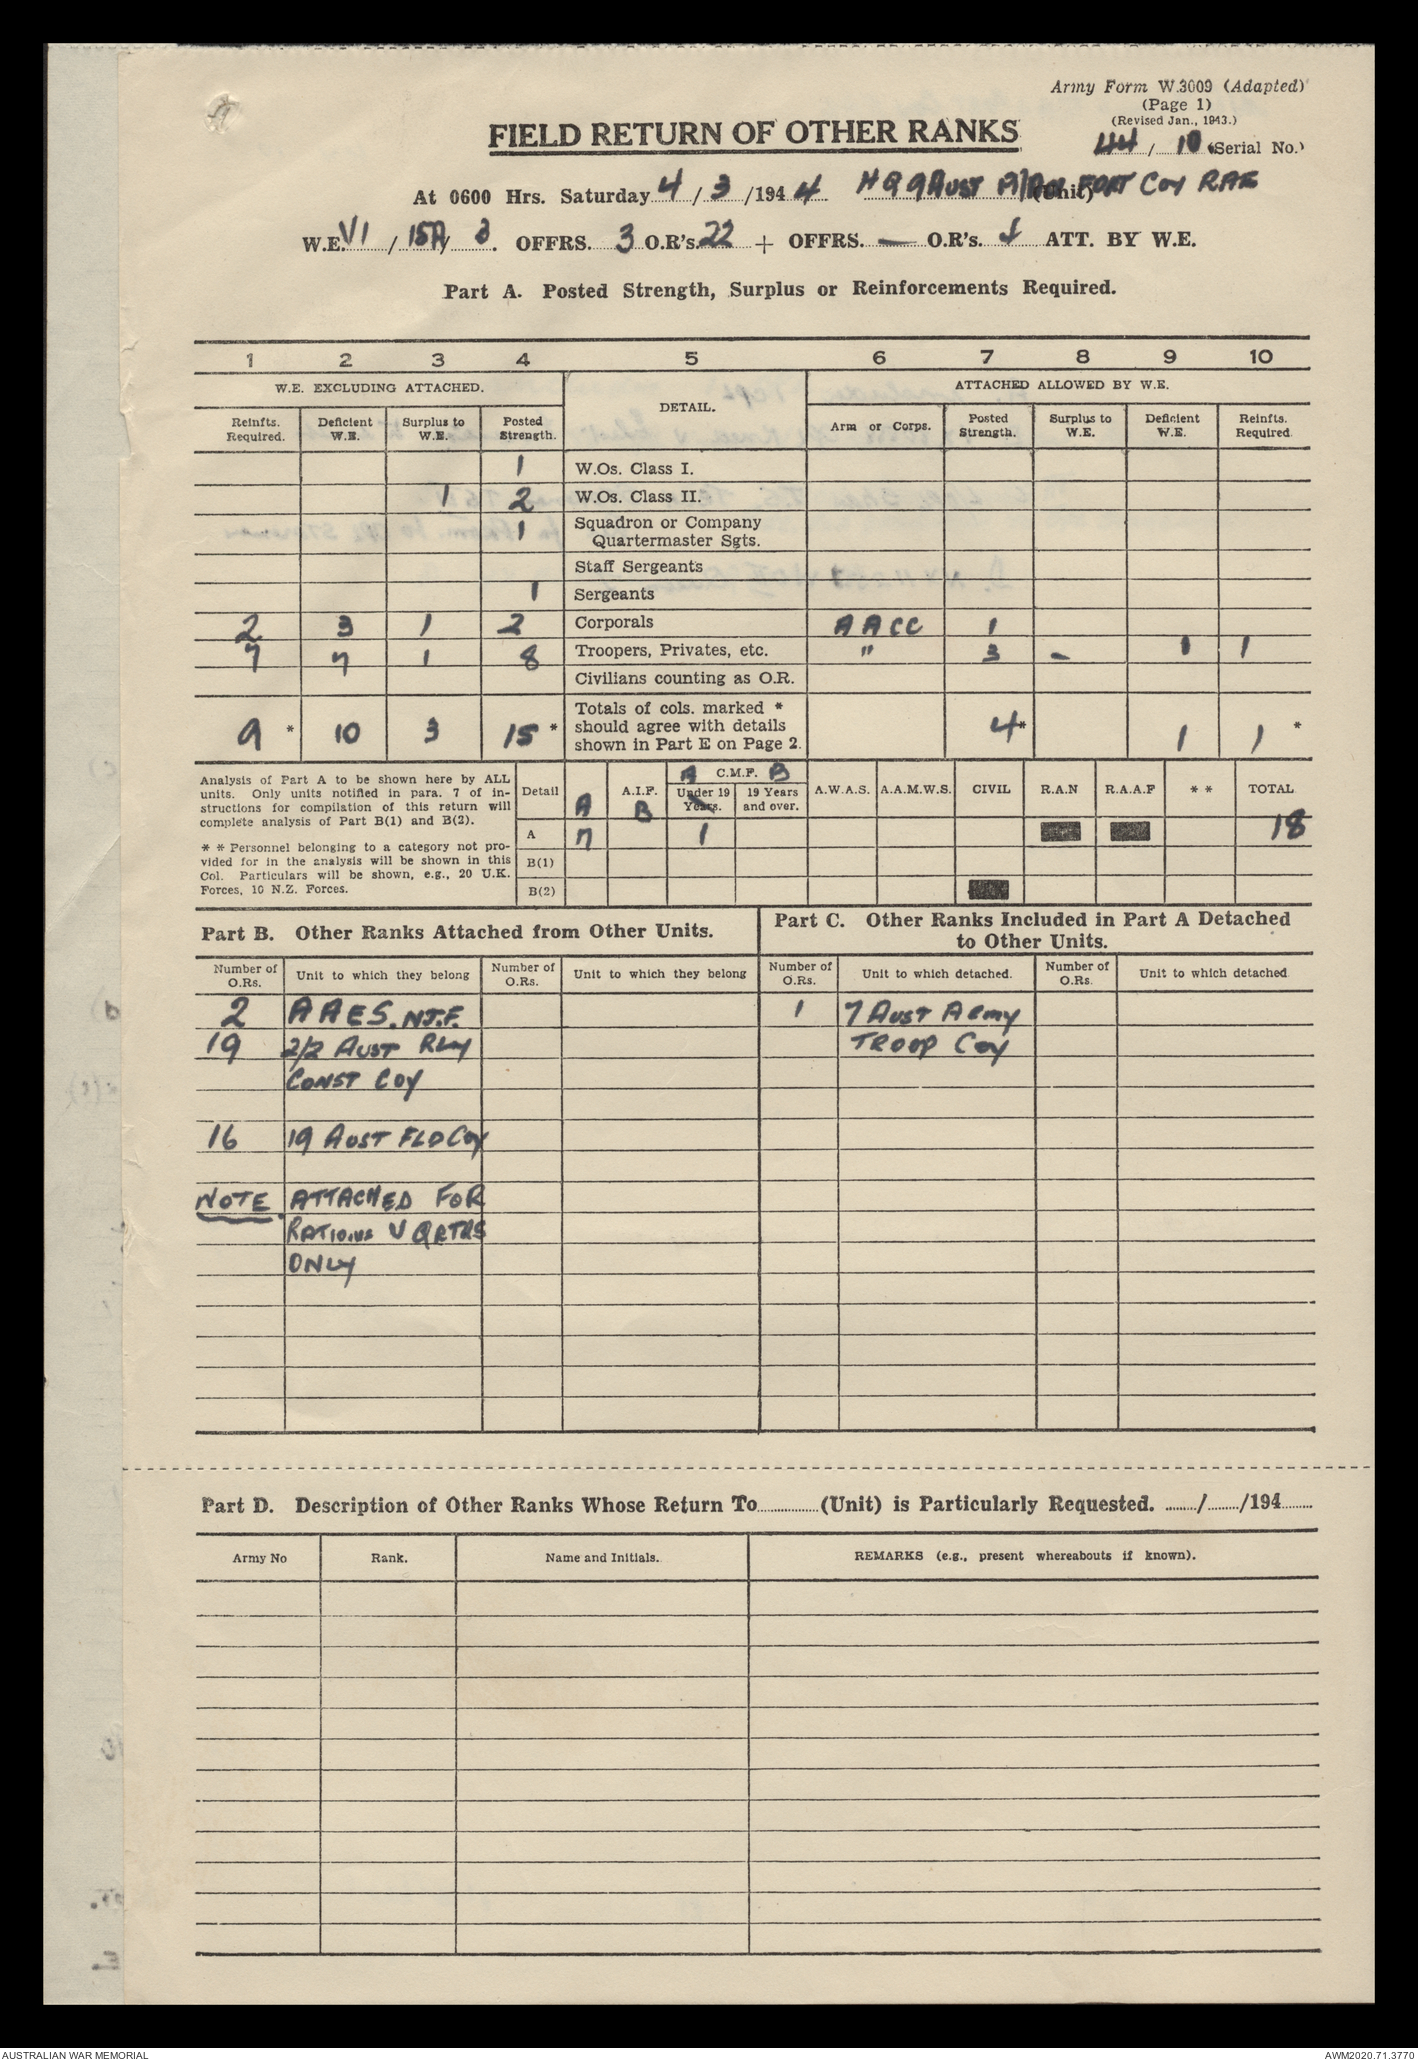 Army Form W.3009 (Adapted)
(Page 1)
(Revised Jan., 1943.)
FIELD RETURN OF OTHER RANKS
44 / 10 (Serial No.)
At 0600 Hrs. Saturday 4 / 3 /194 4 HQ 9 AUST FORT COY RAE (Unit)
W.E. VI / 15A/ 3. OFFRS. 3 O.R's. 22 + OFFRS. — O.R's. ATT. BY W.E.
Part A. Posted Strength, Surplus or Reinforcements Required.
1 2 3 4 5 6 7 8 9 10
W.E. EXCLUDING ATTACHED. DETAIL. ATTACHED ALLOWED BY W.E.
Reinfts. Required. Deficient W.E. Surplus to W.E. Posted Strength. Arm or Corps. Posted Strength. Surplus to W.E. Deficient W.E. Reinfts. Required.
1 W.Os. Class I.
1 2 W.Os. Class II.
1 Squadron or Company
Quartermaster Sgts.
Staff Sergeants
1 Sergeants
2 3 1 2 Corporals AACC 1
7 7 1 8 Troopers, Privates, etc. " 3 - 1 1
Civilians counting as O.R.
9 * 10 3 15 * Totals of cols. marked * should agree with details shown in Part E on Page 2. 4* 1 1 *
Analysis of Part A to be shown here by ALL
units. Only units notified in para. 7 of in-
structions for compilation of this return will
complete analysis of Part B(1) and B(2).
* * Personnel belonging to a category not pro-
vided for in the analysis will be shown in this
Col. Particulars will be shown, e.g., 20 U.K.
Forces, 10 N.Z. Forces.
A C.M.F. B
Detail A A.I.F. B Under 19 Years. 19 Years and over. A.W.A.S. A.A.M.W.S. CIVIL R.A.N R.A.A.F * * TOTAL
A 7 1 18
B(1)
B(2)
Part B. Other Ranks Attached from Other Units.
Part C. Other Ranks Included in Part A Detached
to Other Units.
Number of O.Rs. Unit to which they belong Number of O.Rs. Unit to which they belong Number of O.Rs. Unit to which detached. Number of O.Rs. Unit to which detached
2 AAES. N.T.F. 1 7 AUST ARMY
19 2/2 AUST RLY TROOP COY
CONST COY
16 19 AUST FLD COY
NOTE. ATTACHED FOR
RATIONS V QRTRS
ONLY
Part D. Description of Other Ranks Whose Return To (Unit) is Particularly Requested. / /194
Army No Rank. Name and Initials. REMARKS (e.g., present whereabouts if known).
AUSTRALIAN WAR MEMORIAL AWM2020.71.3770